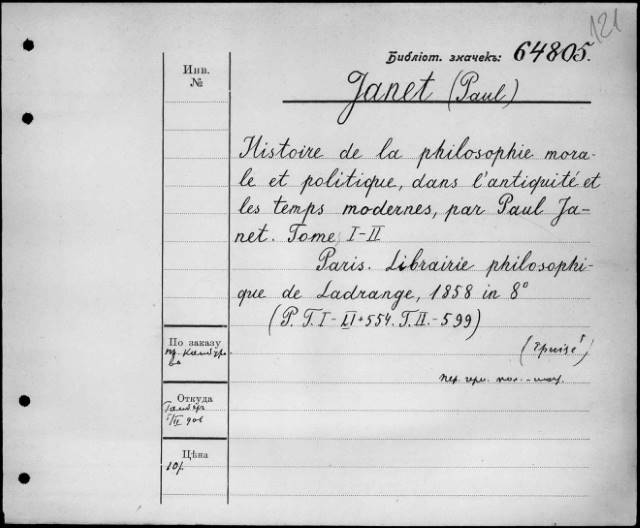 121
Библіот. значекъ: 64805.
Инв.
№
Janet (Paul)
Histoire de la philosophie mora-
le et politique, dans l'antiquité et
les temps modernes, par Paul Ja-
net. Tome I-II
Paris. Librairie philosophi-
que de Ladrange, 1858 in 8°
(P. T. I - LI + 554. T. II. - 599)
По заказу
(Epuisé)
Откуда
Цѣна
10f.